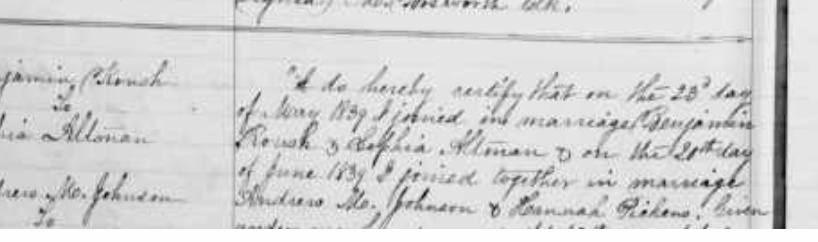 (Signed) Bosworth Clk.
jamin Roush
To
hia Altman
drew Mc. Johnson
To
"I do hereby certify that on the 23d day
of May 1839 I joined in marriage Benjamin
Roush & Sophia Altman & on the 20th day
of June 1839 I joined together in marriage
Andrew Mc. Johnson & Hannah Pickens. Given